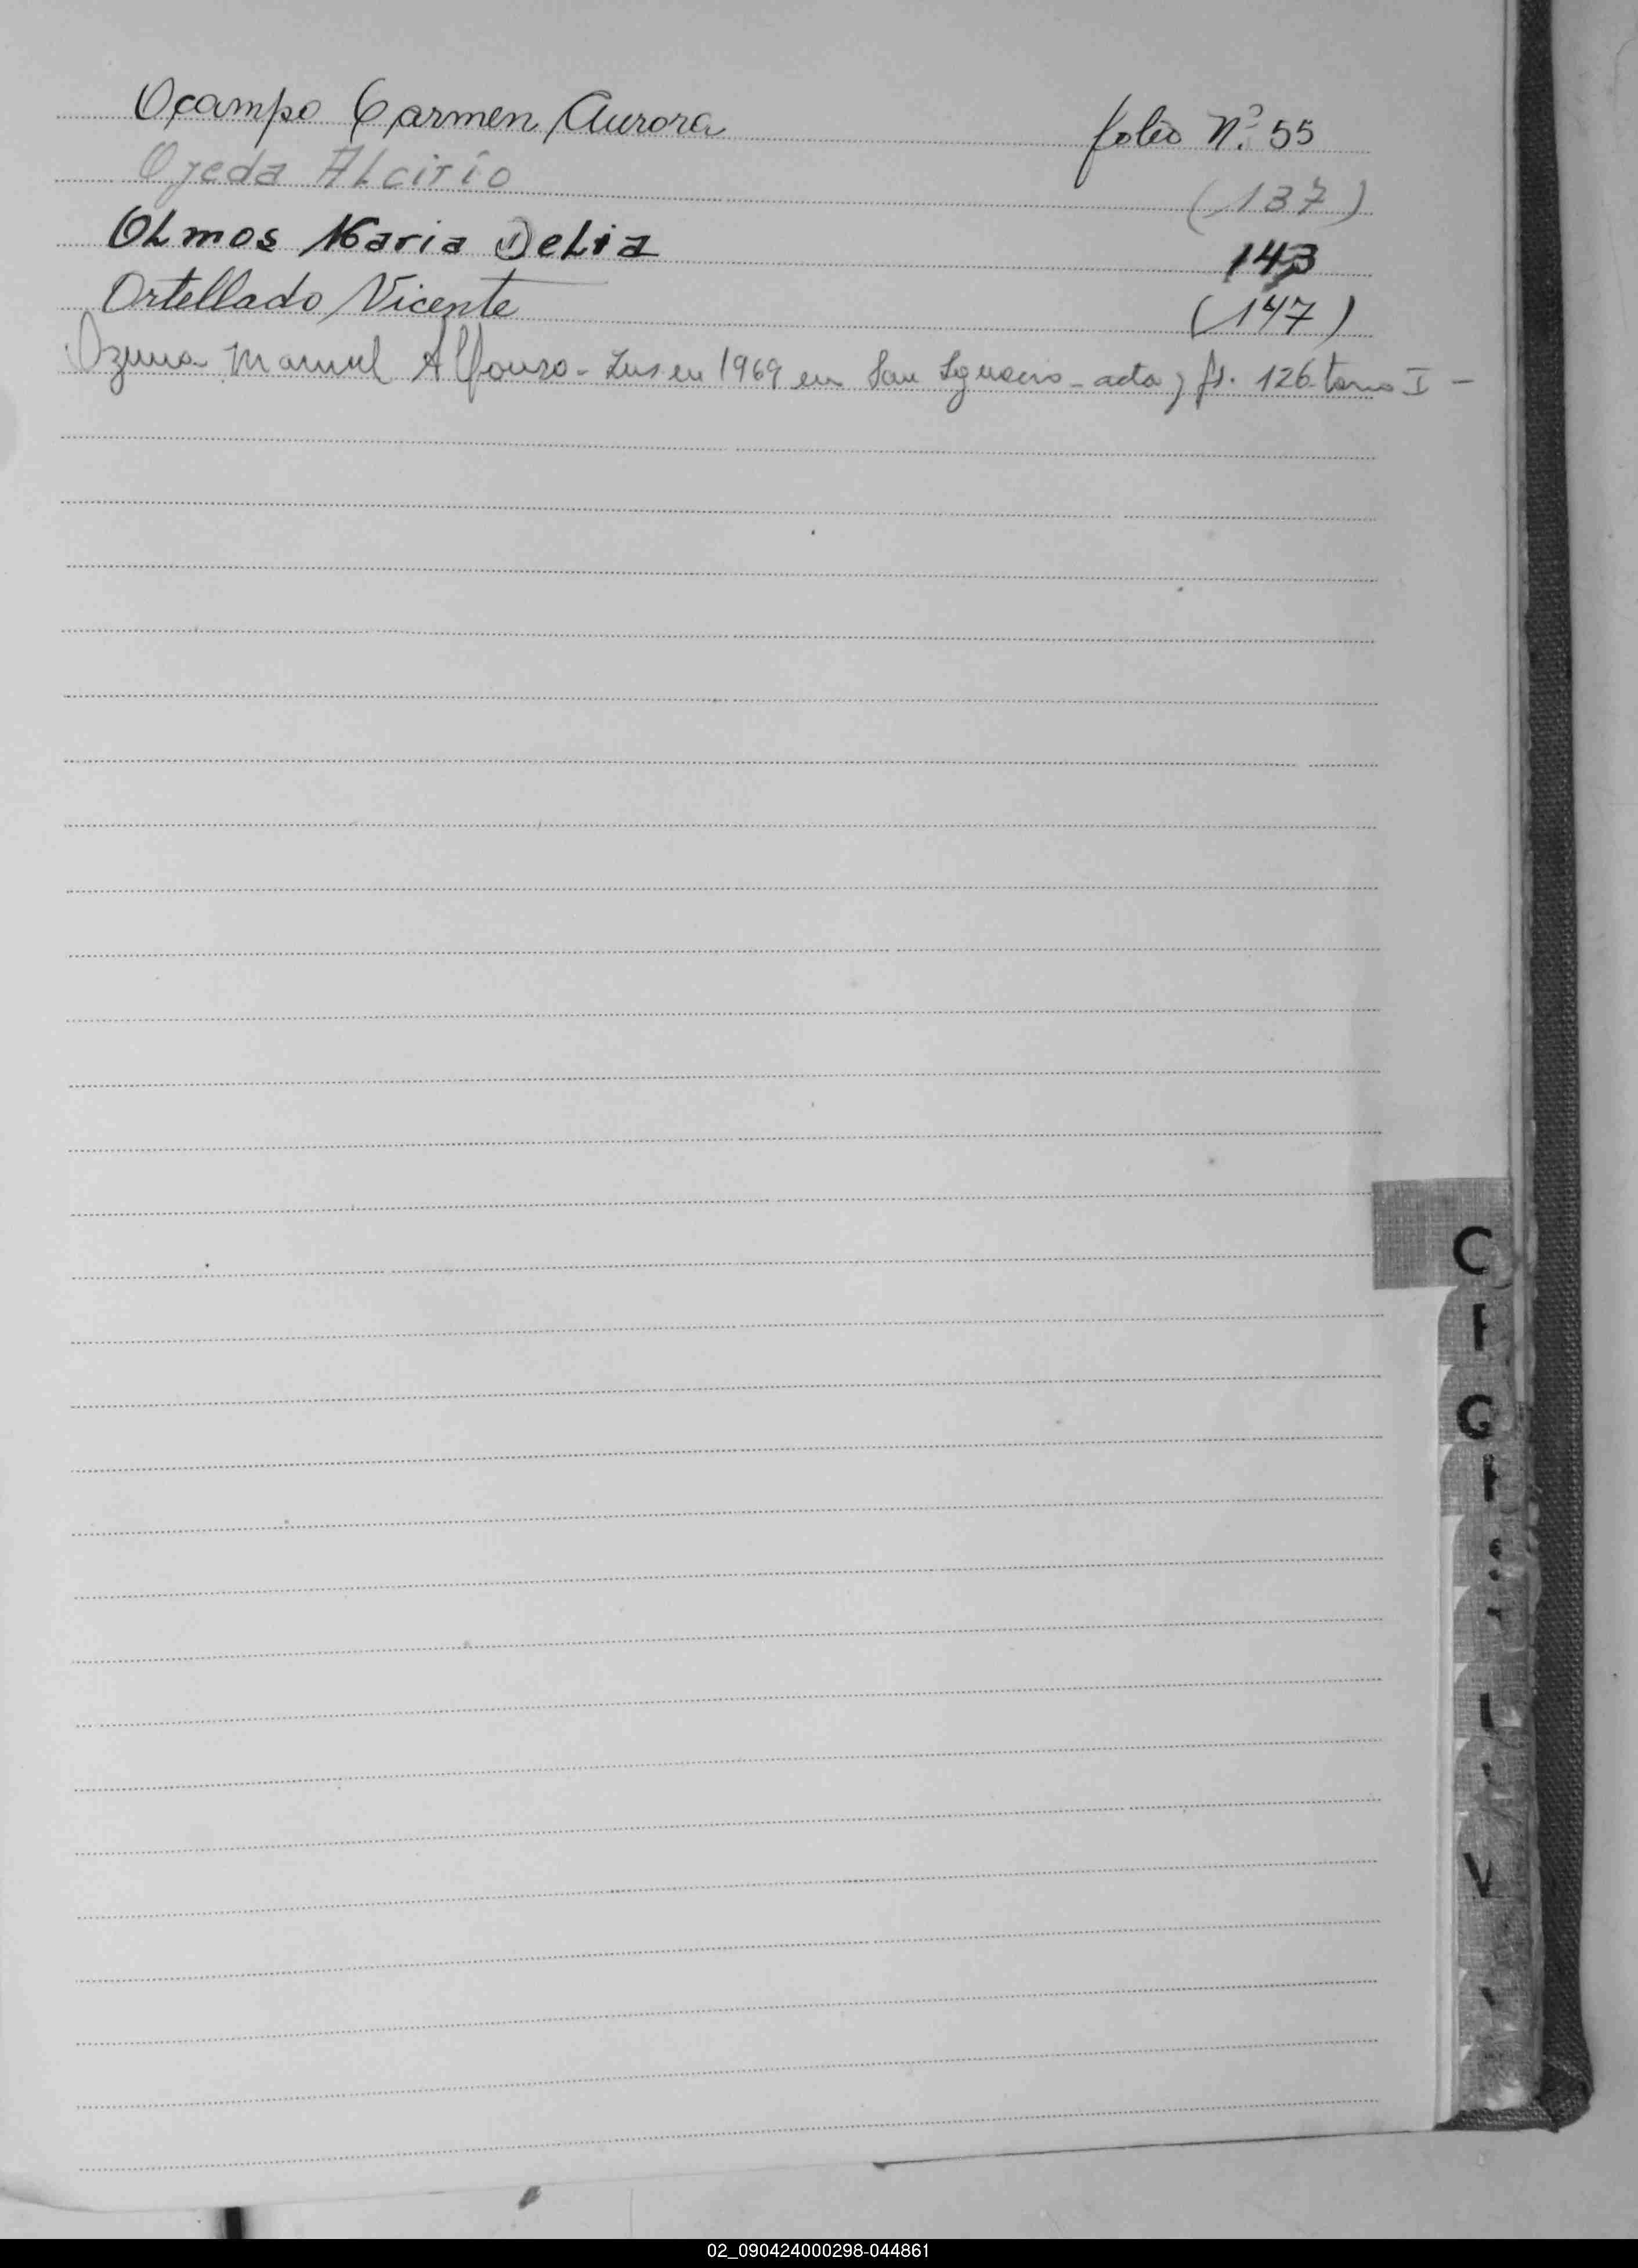 Ocampo Carmen Aurora folio Nº 55
Ojeda Alcirio (137)
Olmos Maria Delia 143
Ortellado Vicente (147)
Ozuna Manuel Alfonzo - Ins. en 1969 en San Ignacio - acta y fs. 126 tomo I -
O
P
Q
R
S
T
U
V
02_090424000298-044861